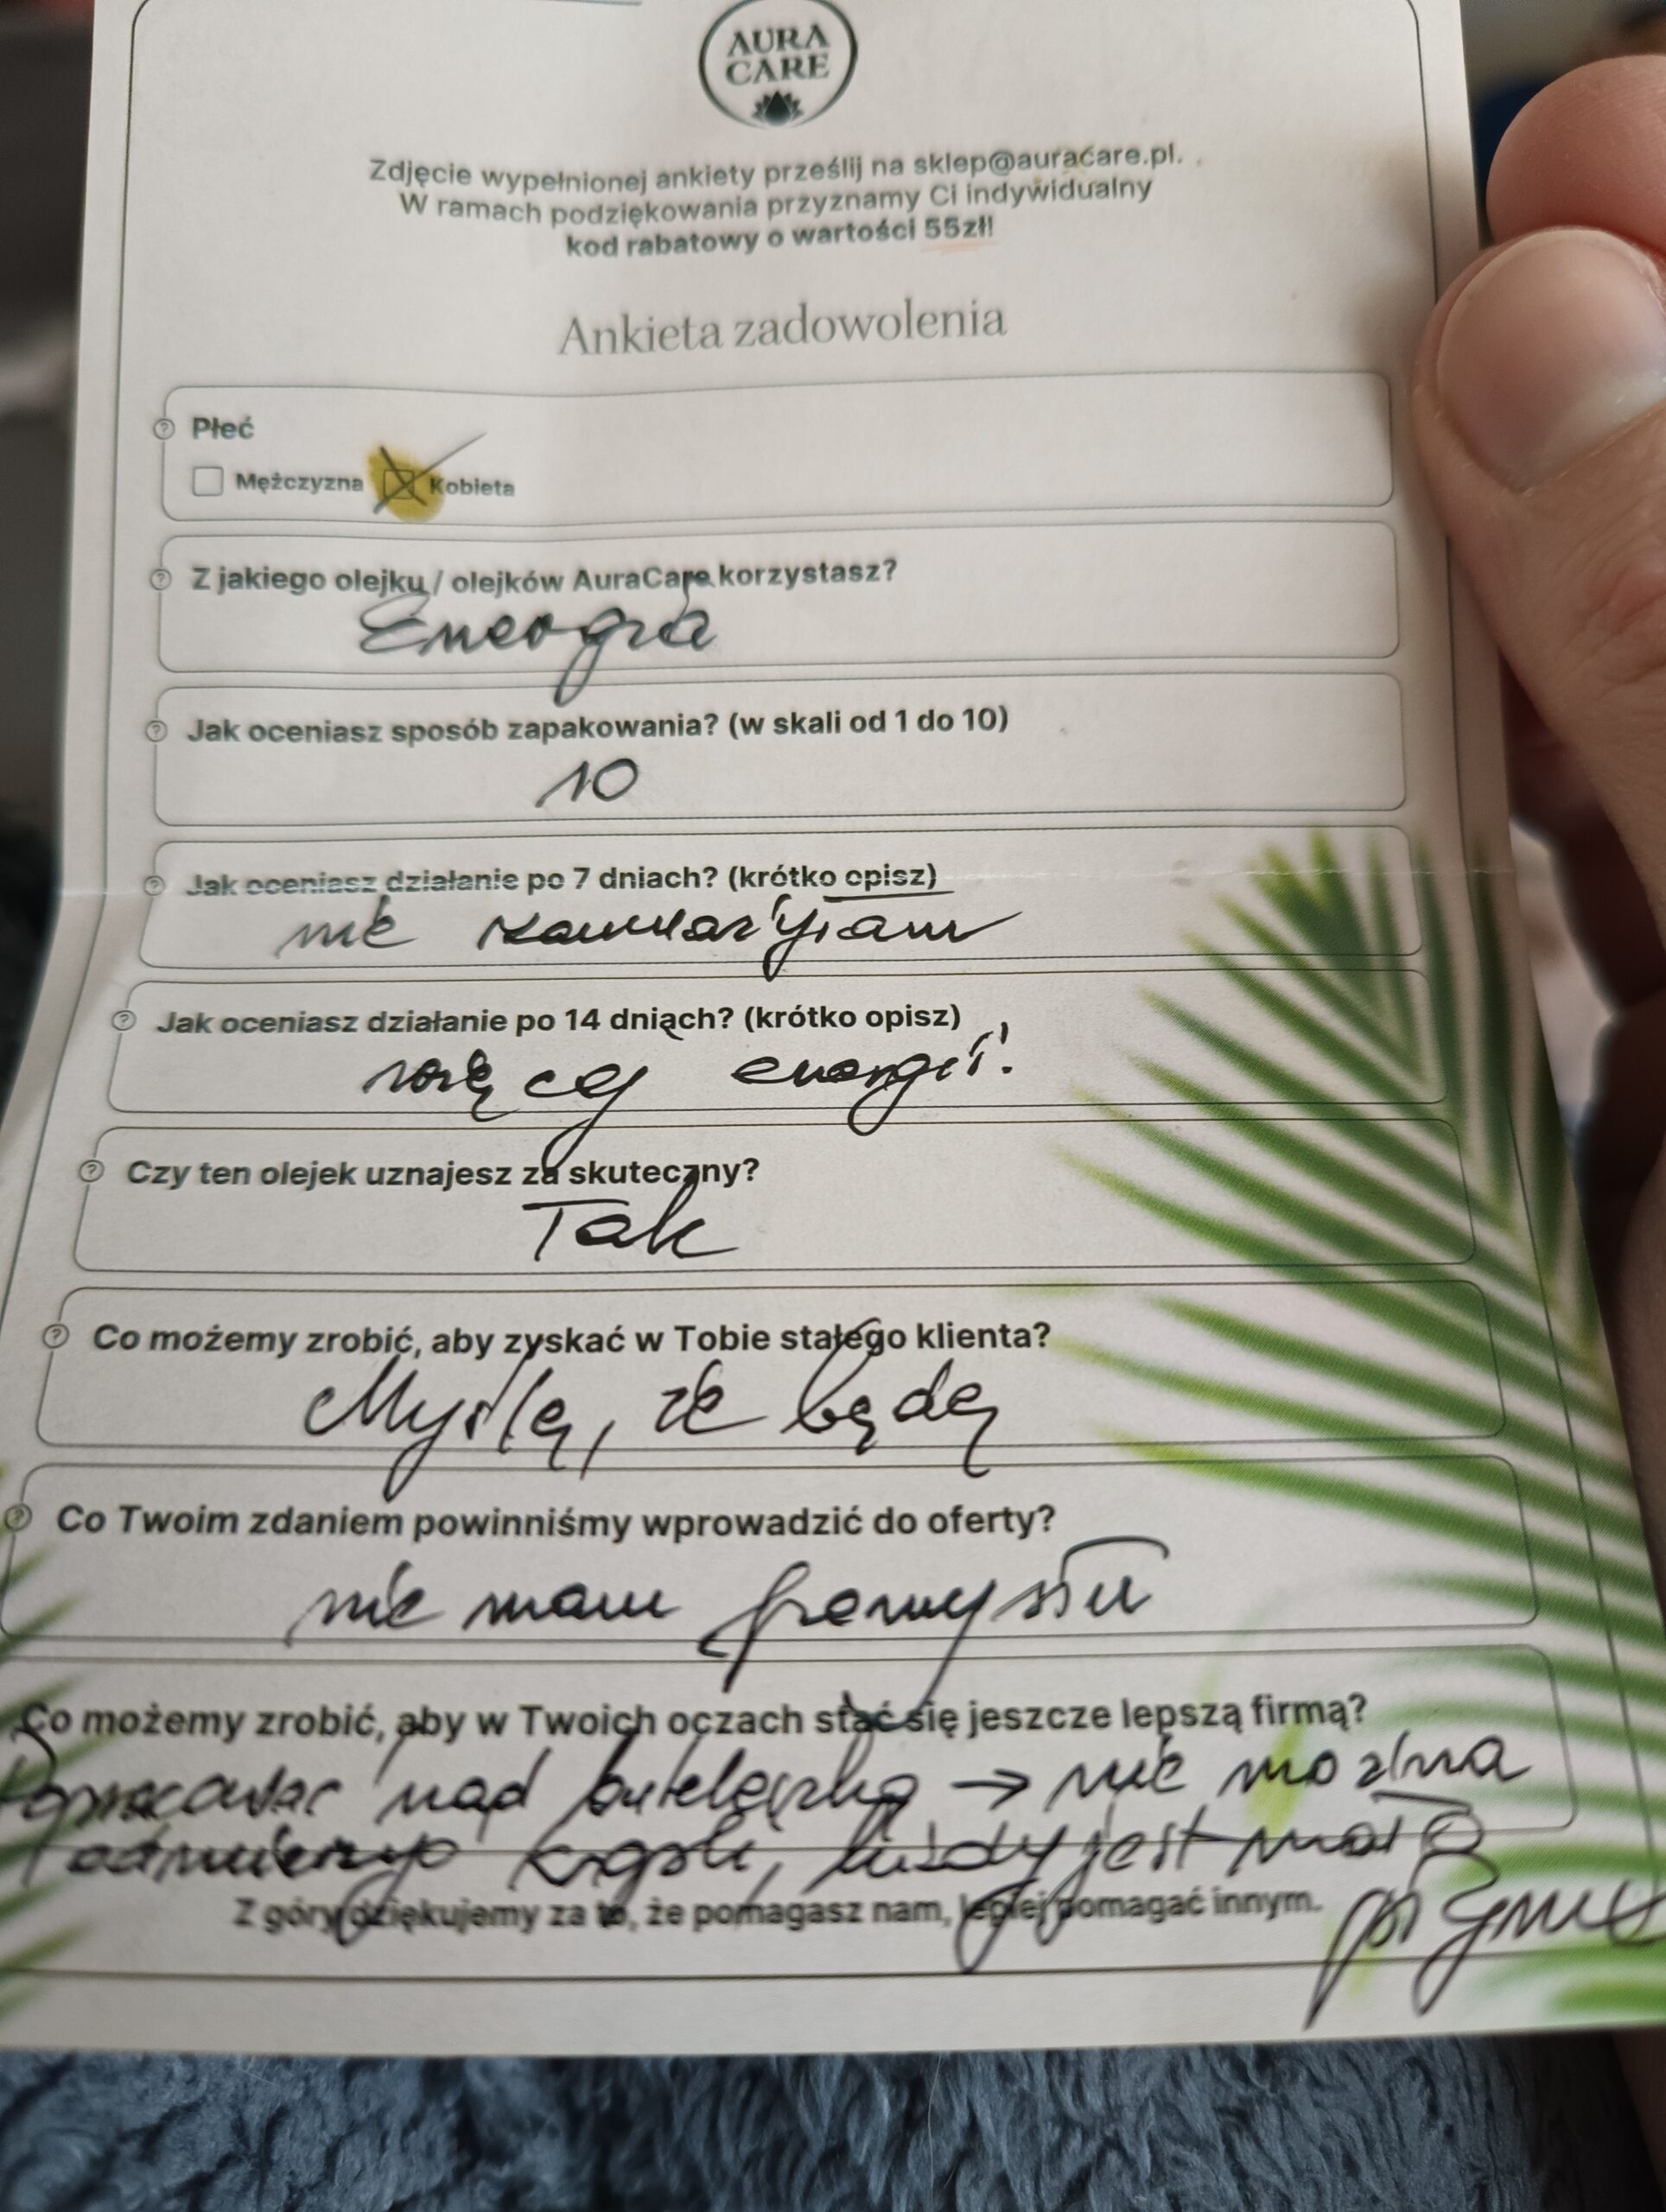 AURA
CARE
Zdjęcie wypełnionej ankiety prześlij na sklep@auracare.pl.
W ramach podziękowania przyznamy Ci indywidualny
kod rabatowy o wartości 55zł!
Ankieta zadowolenia
Płeć
Mężczyzna Kobieta
Z jakiego olejku / olejków AuraCare korzystasz?
Energia
Jak oceniasz sposób zapakowania? (w skali od 1 do 10)
10
Jak oceniasz działanie po 7 dniach? (krótko opisz)
nie zauważyłam
Jak oceniasz działanie po 14 dniach? (krótko opisz)
więcej energii!
Czy ten olejek uznajesz za skuteczny?
Tak
Co możemy zrobić, aby zyskać w Tobie stałego klienta?
Myślę, że będę
Co Twoim zdaniem powinniśmy wprowadzić do oferty?
nie mam pomysłu
Co możemy zrobić, aby w Twoich oczach stać się jeszcze lepszą firmą?
Popracować nad buteleczką → nie można
odmierzyć kropli, kiedy jest mało
płynu
Z góry dziękujemy za to, że pomagasz nam, lepiej pomagać innym.